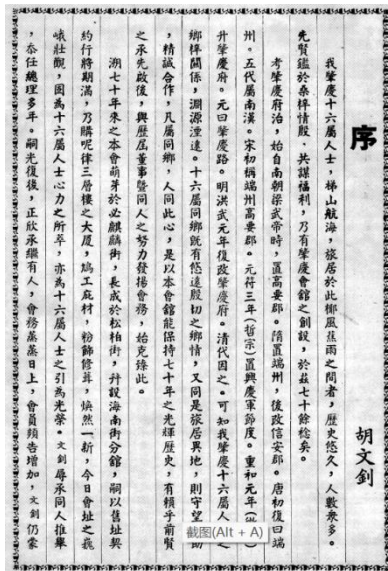 序
胡文釗
我肇慶十六屬人士，梯山航海，旅居於此椰風蕉雨之間者，歷史悠久，人數衆多。
先賢鑑於桑梓情殷，共謀福利，乃有肇慶會館之創設，於茲七十餘稔矣。
考肇慶府治，始自南朝梁武帝時，置高要郡。隋置端州，後改信安郡。唐初復曰端
州。五代屬南漢。宋初稱端州高要郡。元符三年（哲宗）置興慶軍節度。重和元年（
升肇慶府。元曰肇慶路。明洪武元年復改肇慶府。清代因之。可知我肇慶十六屬人
鄉梓關係，淵源湮遠。十六屬同鄉既有悠遠殷切之鄉情，又同是旅居異地，則守望助
，精誠合作，凡屬同鄉，人同此心，是以本會館能保持七十年之光輝歷史，有賴于前賢
之承先啟後，與歷屆董事暨同人之努力發揚會務，始克臻此。
溯七十年來之本會萌芽於必麒麟街，長成於松柏街，并設海南街分館，嗣以舊址契
約行將期滿，乃購呢律三層樓之大厦，鳩工庇材，粉飾修葺，煥然一新，今日會址之巍
峨壯觀，固為十六屬人士心力之所萃，亦為十六屬人士之引為光榮。文釗辱承同人推舉
，忝任總理多年。嗣光復後，正欣承繼有人，會務蒸蒸日上，會員頻告增加，文釗仍蒙
截图(Alt + A)